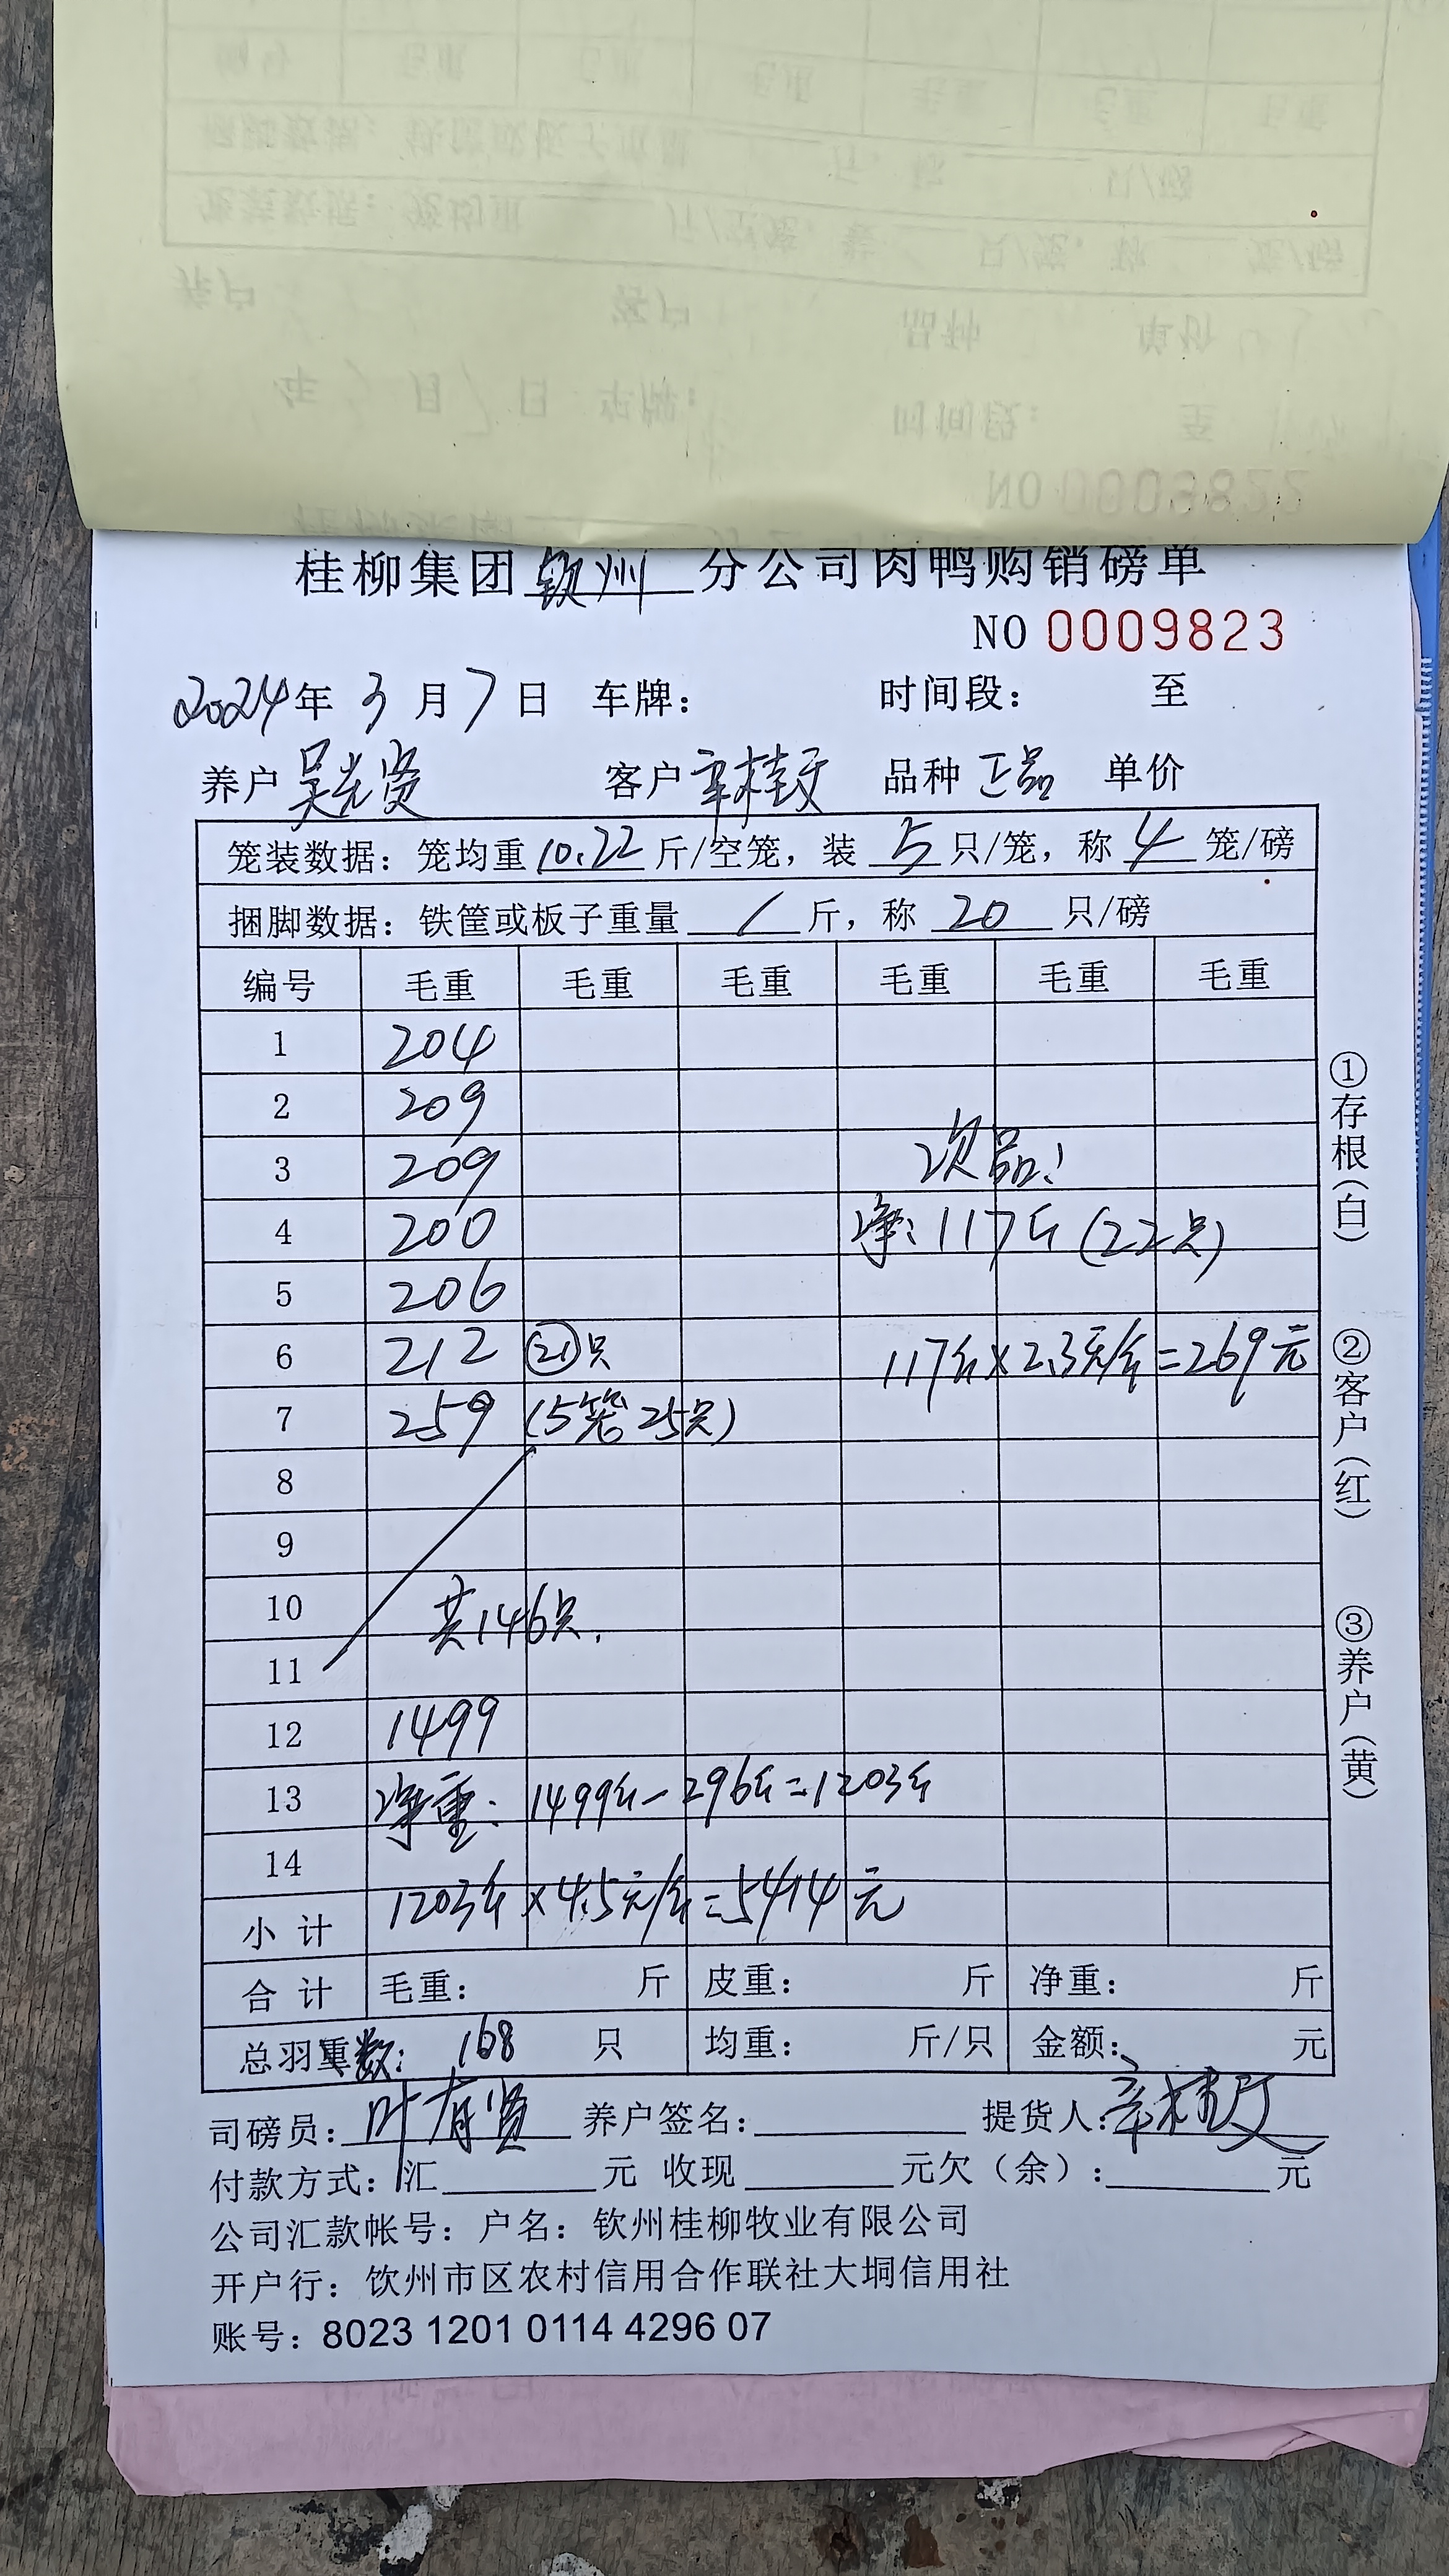 桂柳集团钦州分公司肉鸭购销磅单
NO 0009823
2024年3月7日 车牌: 时间段: 至
养户 吴光贤 客户 辛桂文 品种 正品 单价
笼装数据: 笼均重 10.22 斤/空笼, 装 5 只/笼, 称 4 笼/磅
捆脚数据: 铁筐或板子重量 / 斤, 称 20 只/磅
编号 毛重 毛重 毛重 毛重 毛重 毛重
1 204
2 209
3 209 次品:
4 200 净: 117斤 (22只)
5 206
6 212 (21)只 117斤×2.3元/斤=269元
7 259 (5笼25只)
8
9
10 共146只.
11
12 1499
13 净重: 1499斤-296斤=1203斤
14
小计 1203斤×4.5元/斤=5414元
合计 毛重: 斤 皮重: 斤 净重: 斤
总羽数: 168 只 均重: 斤/只 金额: 元
司磅员: 叶有贤 养户签名: 提货人: 辛桂文
付款方式: 汇 元 收现 元欠(余): 元
公司汇款帐号: 户名: 钦州桂柳牧业有限公司
开户行: 钦州市区农村信用合作联社大垌信用社
账号: 8023 1201 0114 4296 07
①存根(白)
②客户(红)
③养户(黄)